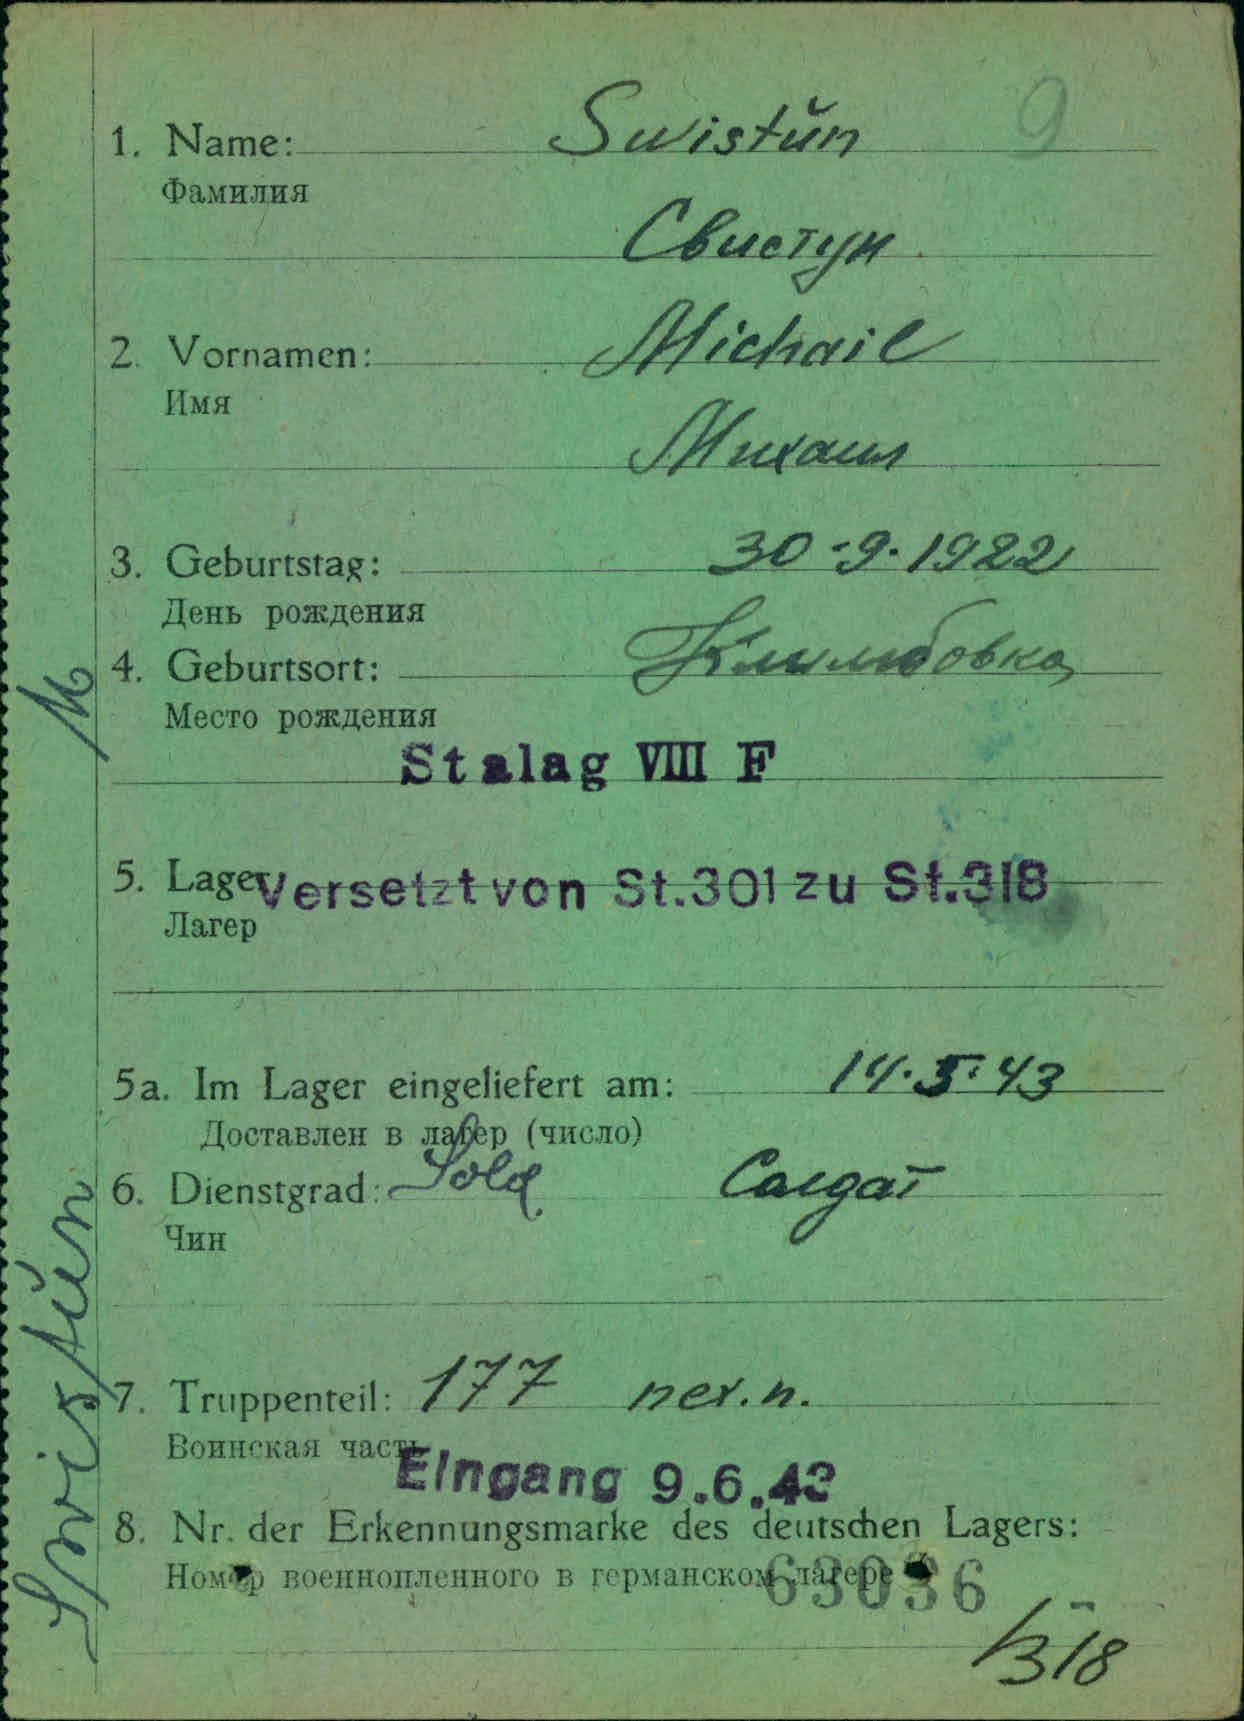 9
1. Name: Swistŭn
Фамилия
Свистун
2. Vornamen: Michail
Имя
Михаил
3. Geburtstag: 30-9.1922
День рождения
4. Geburtsort:
Место рождения
Stalag VIII F
5. Lager Versetzt von St.301 zu St.318
Лагер
5a. Im Lager eingeliefert am: 14.5.43
Доставлен в лагер (число)
6. Dienstgrad: Sold Солдат
Чин
7. Truppenteil: 177 пех.п.
Воинская часть
Eingang 9.6.43
8. Nr. der Erkennungsmarke des deutschen Lagers:
Номер военнопленного в германском лагере
63036
/318
Swistŭn M